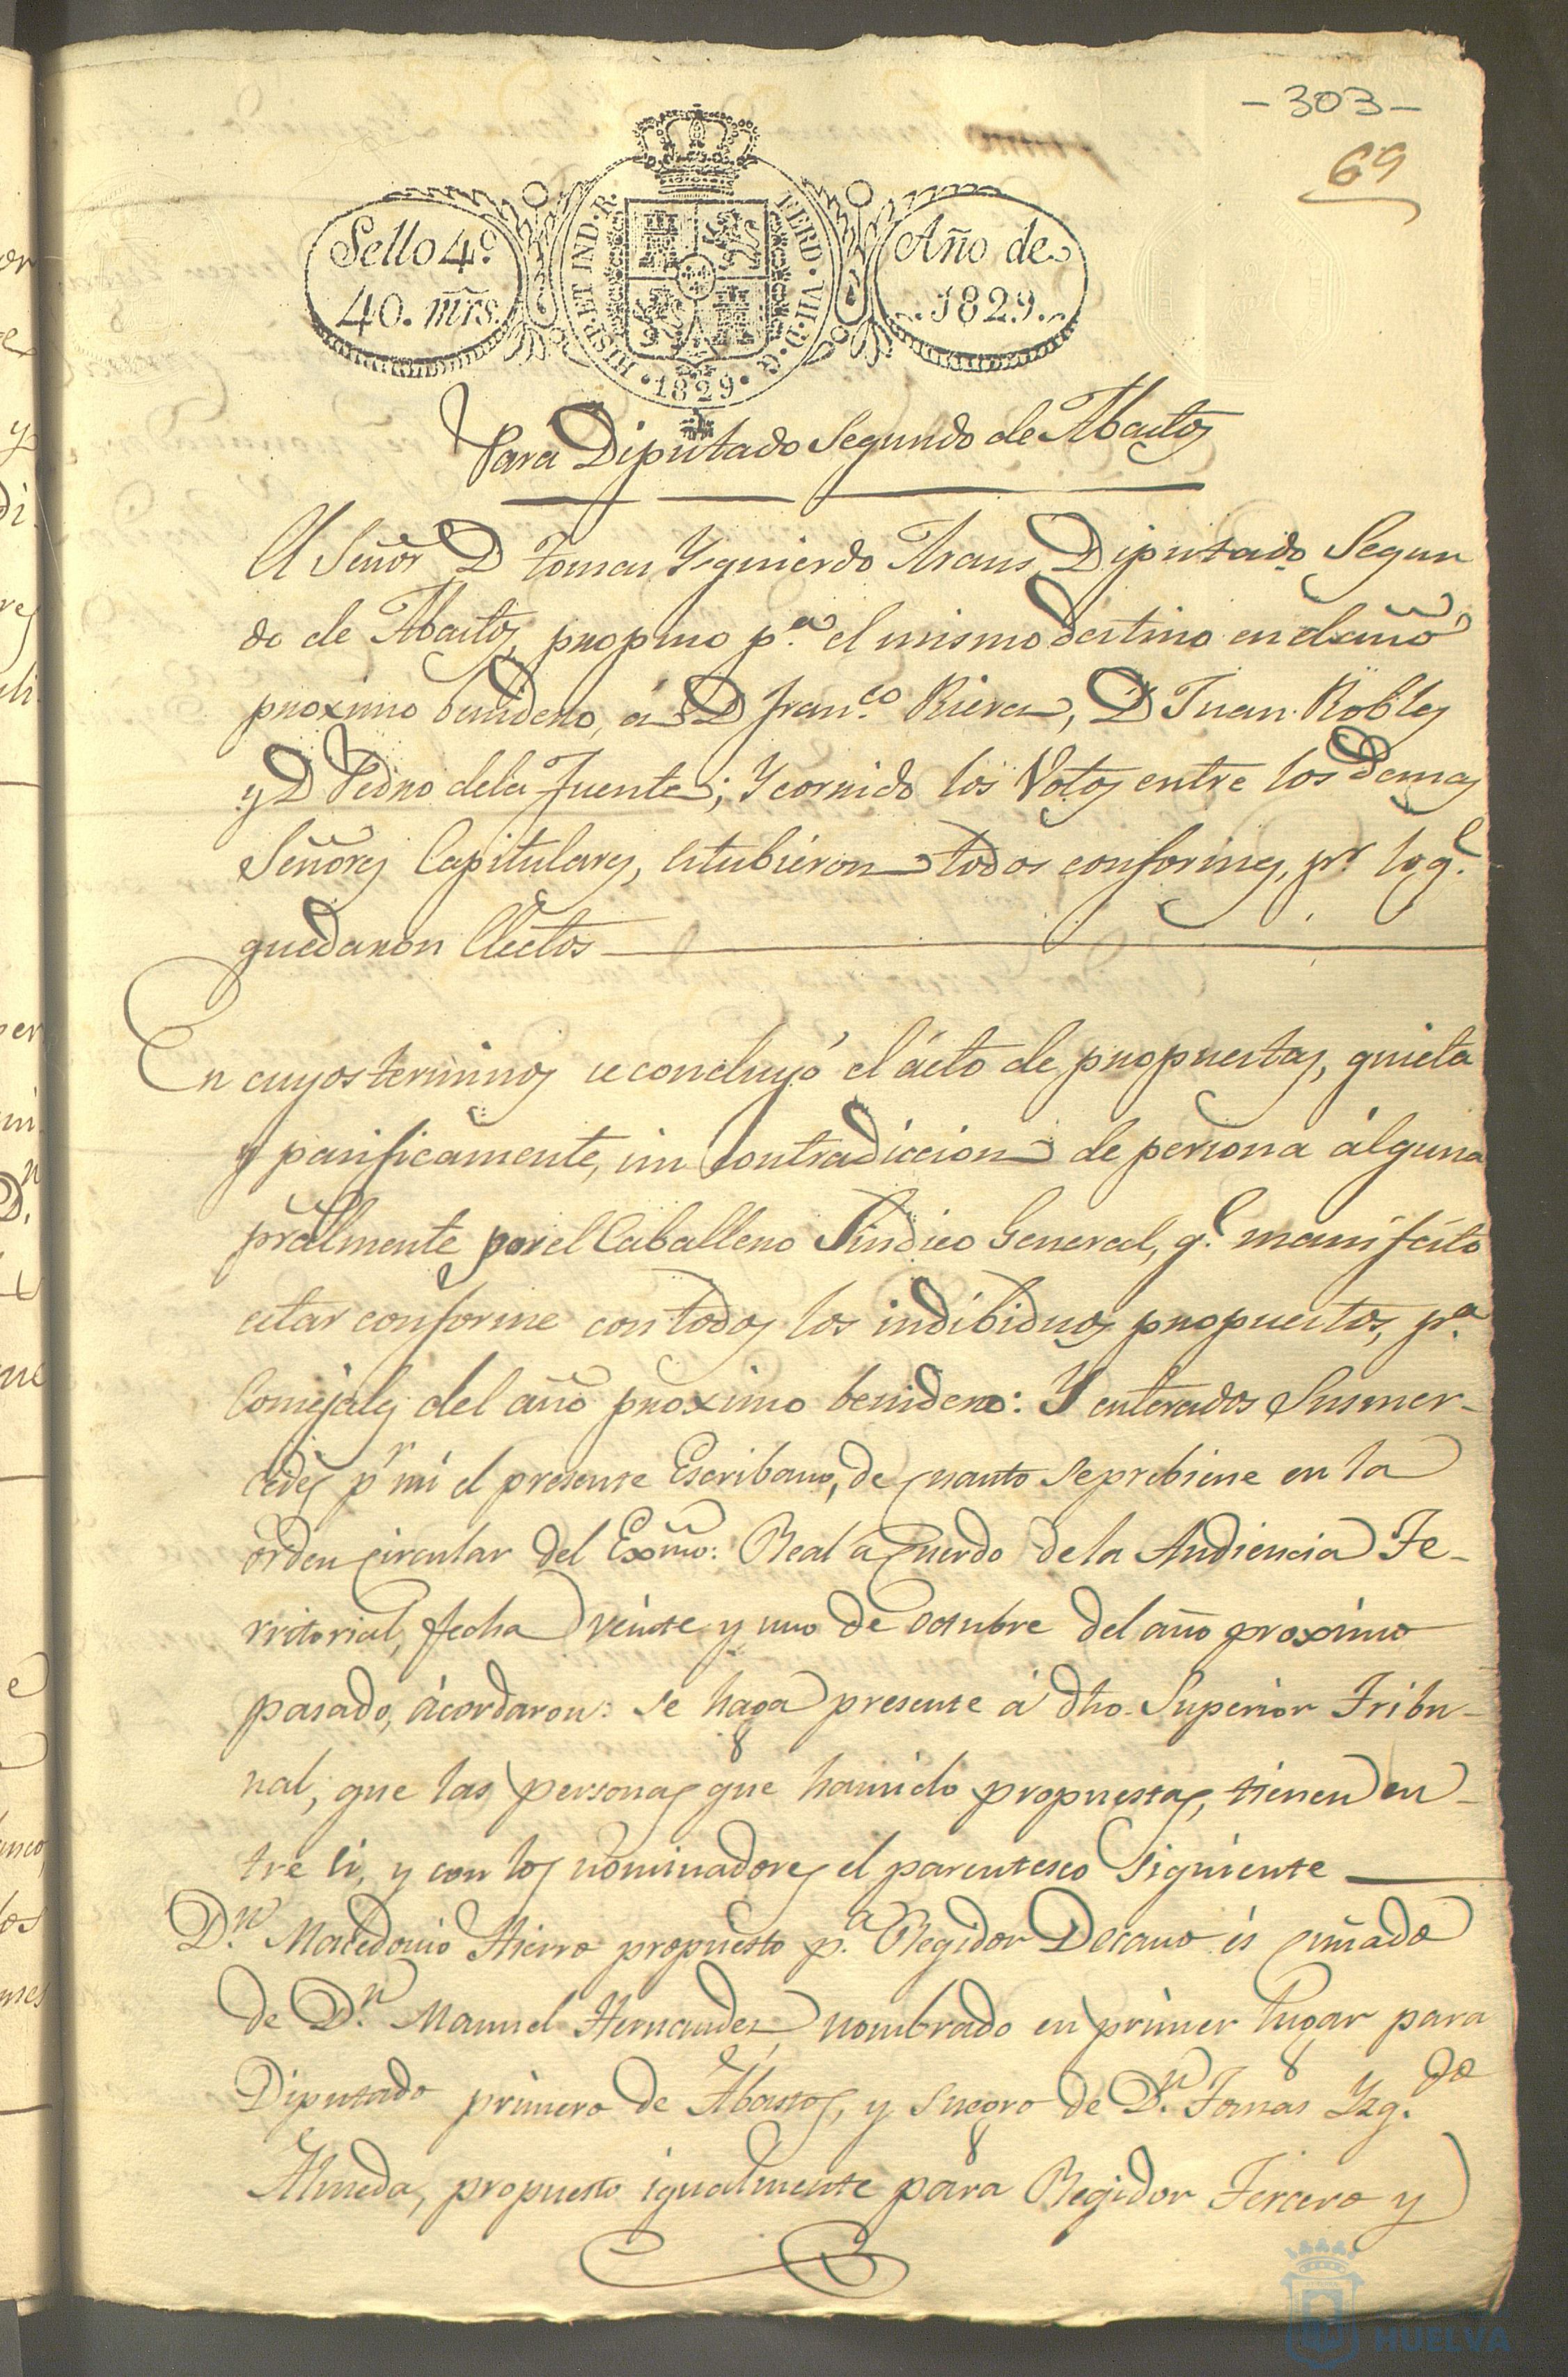 -303-
69
Sello 4º
40. mrs.
HISP. ET IND. R. FERD. VII. D. G.
1829
Año de
1829.
Para Diputado Segundo de Abastos
El Señor D Tomas Yzquierdo Diputado Segun
do de Abastos, propuso pª. el mismo destino en el año
proximo benidero, á D Franco. Riera, D Juan Robles
y D Pedro dela Fuente; Y corrido los Votos entre los demas
Señores Capitulares, estubieron todos conformes, pr. lo q.
quedaron Electos
En cuyos terminos se concluyó el ácto de propuestas, quieta
y pasificamente, sin Contradiccion de persona álguna
pralmente por el Caballero Sindico General, q. manifésto
estar conforme con todos los indibiduos propuestos, pª.
Consejales del año proximo benidero: Y enterados Susmer-
cedes pr mi el presente Escribano, de cuanto se prebiene en la
órden circular del Exmo: Real acuerdo de la Audiencia Te-
rritorial, fecha veinte y uno de octubre del año proximo
pasado, ácordaron: se haga presente á dho. Superior Tribu-
nal, que las personas que han sido propuestas, tienen en-
tre si, y con los nominadores el parentesco siguiente
Dn. Macedonio Hierro propuesto pª. Regidor Decano és cuñado
de Dn. Manuel Hernandez nombrado en primer lugar para
Diputado primero de Abastos, y suegro de Dn. Tomas Yzq.do
Almeda, propuesto igualmente para Regidor Tercero y
HUELVA